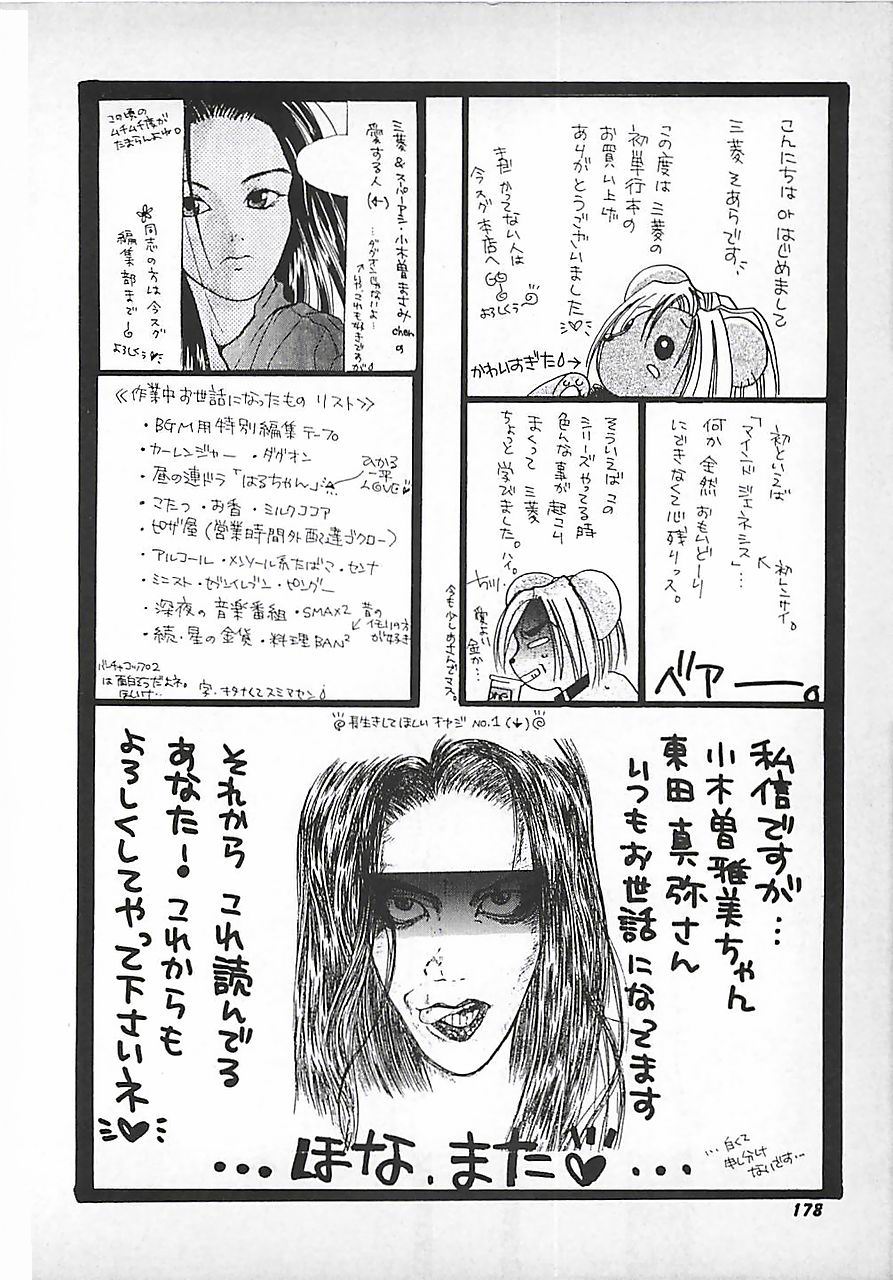 こんにちは or はじめまして
三菱 そあらです。
この度は 三菱の
初単行本の
お買い上げ
ありがとうございました
まだ かってない人は
今スグ 本店へ GO
よろしくぅ
かわいすぎた
初といえば
「マインド ジェネシス」…
初レンサイ。
何か 全然 おもいどーり
にできなくて 心残りっス。
ベアー。
そういえば この
シリーズやってる時
色んな事が 起こり
まくって 三菱
ちょっと 学びました。ハイ。
今も少しあさんでマス。
三菱 & スパーアシ・小木曽 まさみ chanの
愛する人 (←)
…ダグオンじゃないよ…
いや、これも好きですが
この頃の
ムチムチ度が
たまらんよね。
同志の方は 今スグ
編集部まで
よろしくぅ
≪作業中 お世話になったもの リスト≫
・BGM用特別編集テープ
・カーレンジャー ・ダグオン
・昼の連ドラ「はるちゃん」
ひかる
一平
LOVE
・コタツ ・お香 ・ミルクココア
・ピザ屋 (営業時間外配達ゴクロー)
・アルコール ・メンソール系たばこ ・センナ
・ミニスト ・セブンイレブン ・ピングー
・深夜の音楽番組 ・SMAX2
・続・星の金貨 ・料理BAN²
昔の
イモリの方
が好き
は面白そうだよネ。
字、キタナくてスミマセン
長生きしてほしい オヤジ NO.1 (↓)
私信ですが…
小木曽 雅美ちゃん
東田 真弥さん
いつもお世話になってます
それから これ読んでる
あなた! これからも
よろしくしてやって下さいネ
…ほな、また…
…白くて
申し分け
ないです…
178